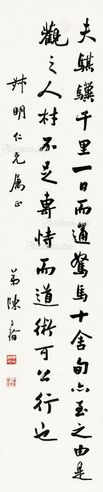 夫驥驥千里一日而通駑馬十舍旬亦至之由是
觀之人材不足專恃而道術可公行也
妹明仁兄属正
弟陳之